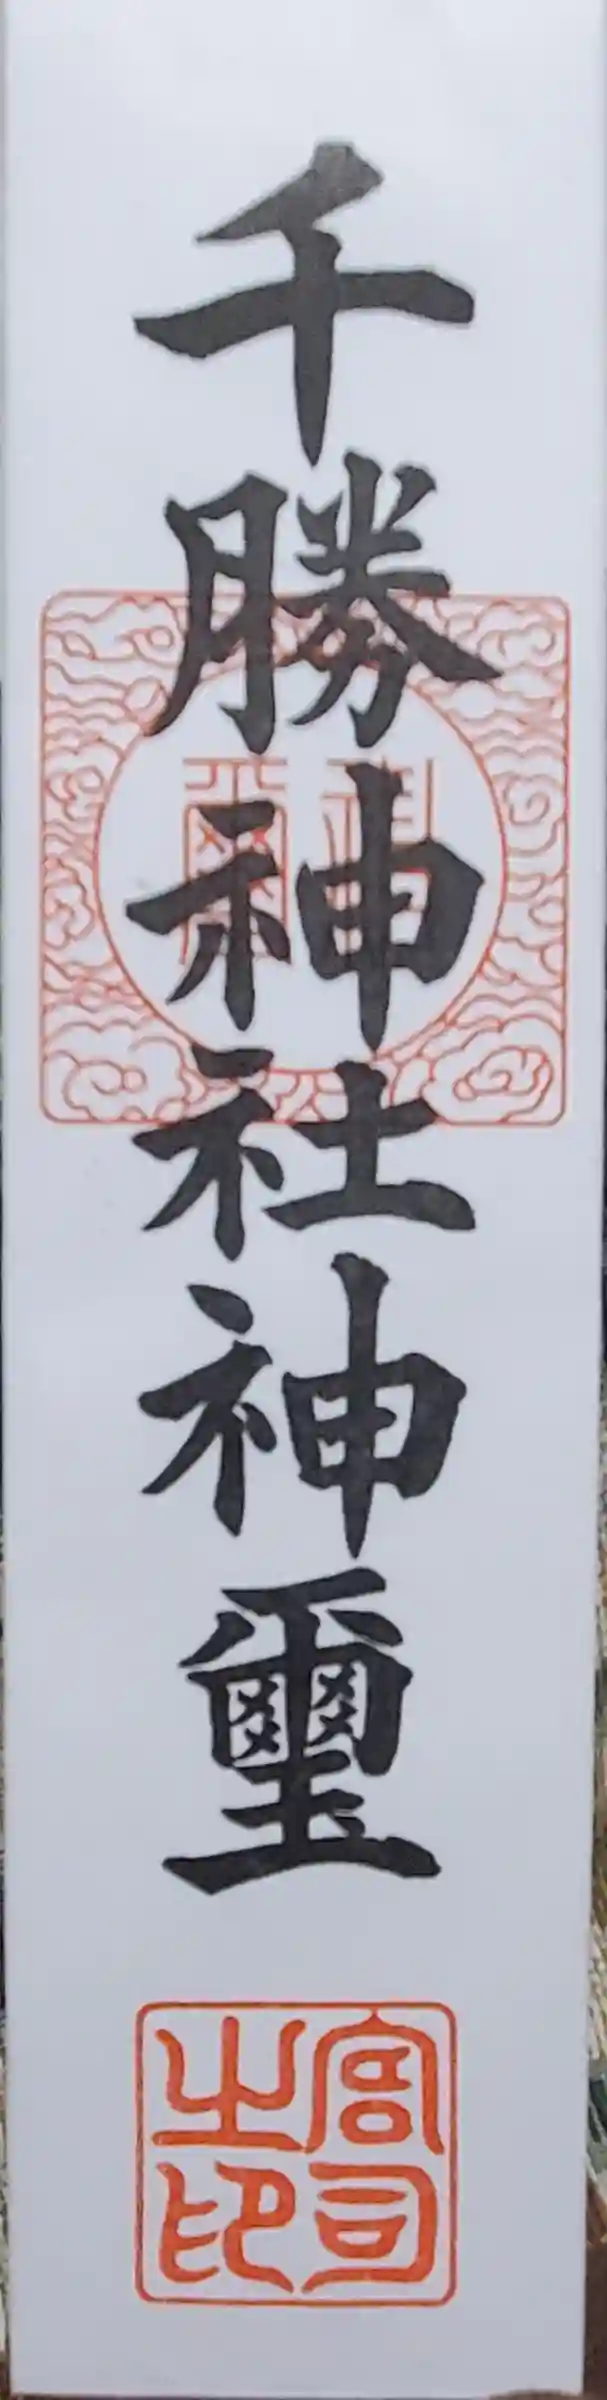 千勝神社神璽
宮司
之印